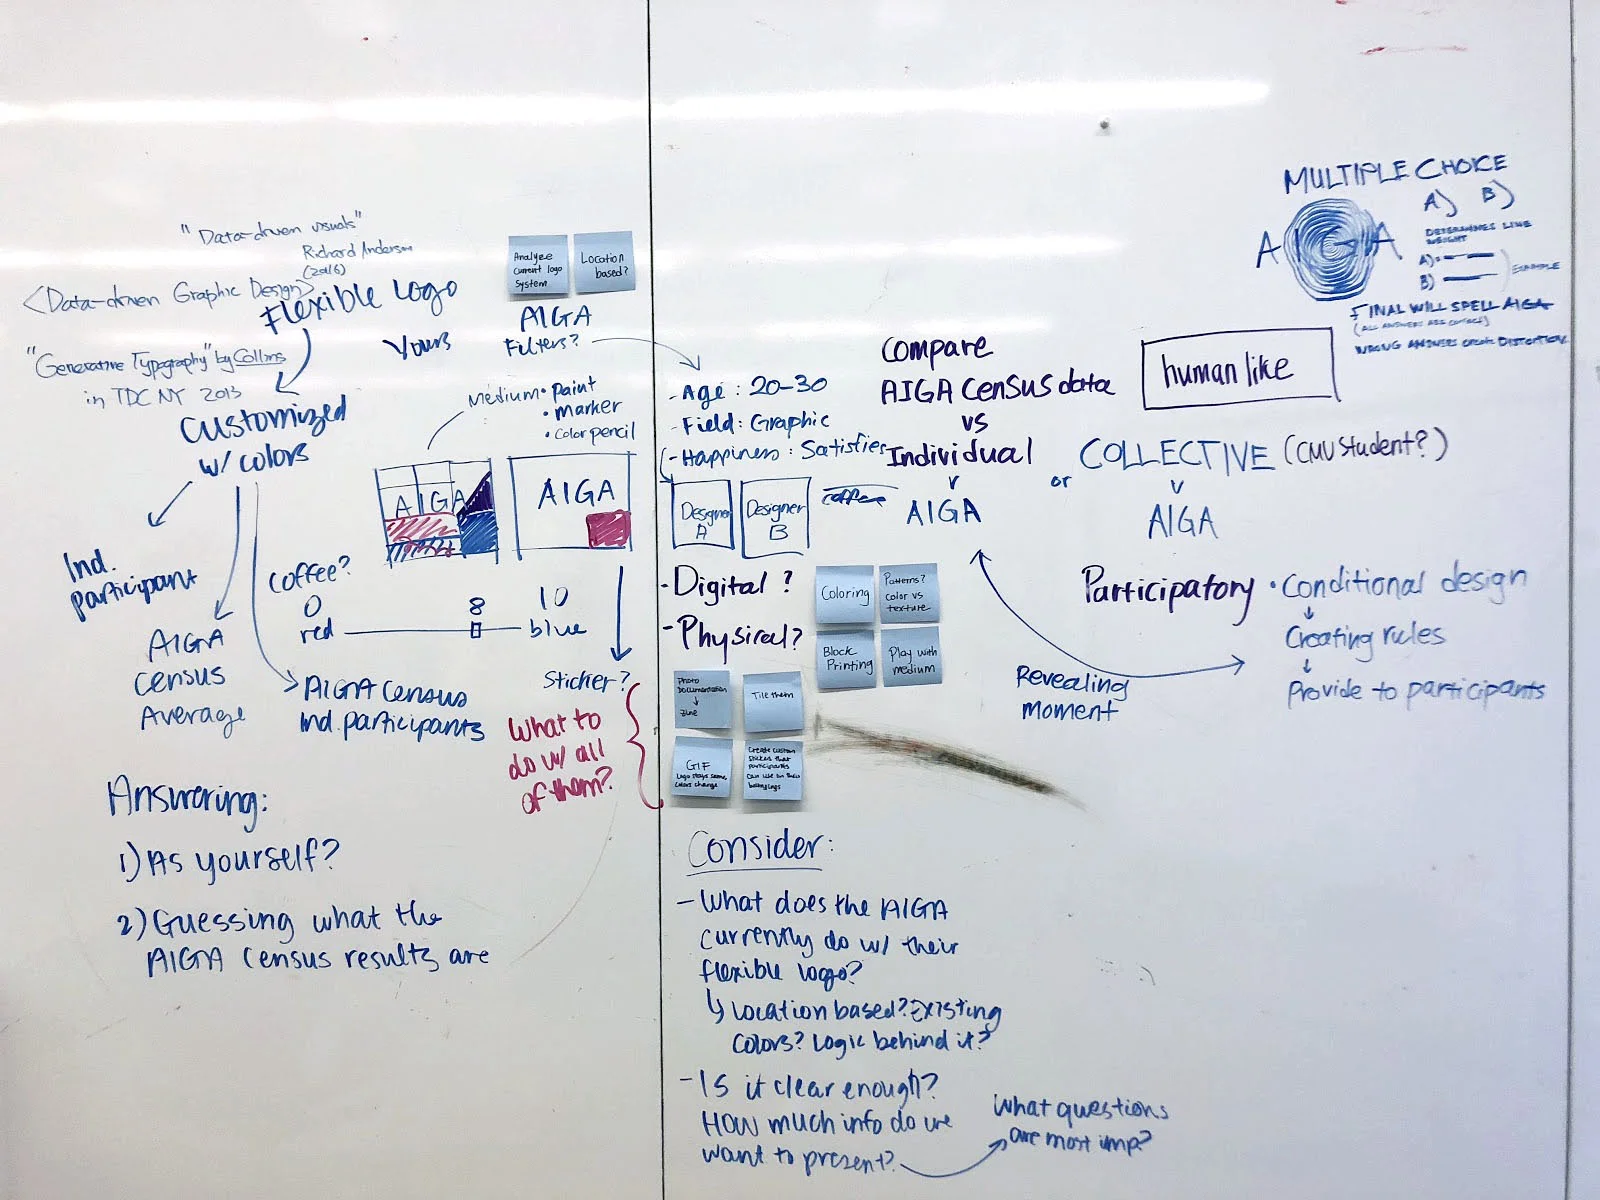 "Data-driven visuals"
Richard Anderson
(2016)
<Data-driven Graphic Design>
Flexible Logo
"Generative Typography" by Collins
in TDC NY 2013
Customized
w/ colors
Ind.
participant
AIGA
Census
Average
AIGA Census
Ind. participants
Coffee?
0
red
8
10
blue
Yours
Analyze
current logo
system
Location
based?
AIGA
Filters?
Medium • paint
• marker
• color pencil
AIGA
AIGA
Sticker?
What to
do w/ all
of them?
Answering:
1) As yourself?
2) Guessing what the
AIGA Census results are
- Age: 20-30
- Field: Graphic
- Happiness: Satisfies
Designer
A
Designer
B
coffee
- Digital?
- Physical?
Coloring
Patterns?
color vs
texture
Block
Printing
Play with
medium
Photo
Documentation
↓
Zine
Tile them
GIF
Logo stays same,
colors change
Create custom
stickers that
participants
can use on their
belongings
Compare
AIGA Census data
vs
Individual
AIGA
or
COLLECTIVE (CMU Student?)
AIGA
human like
Participatory • Conditional design
↓
Creating rules
↓
Provide to participants
Revealing
moment
MULTIPLE CHOICE
AIGA
A) B)
DETERMINES LINE
WEIGHT
A)
B)
EXAMPLE
FINAL WILL SPELL AIGA
(ALL ANSWERS ARE CORRECT)
WRONG ANSWERS CREATE DISTORTION
Consider:
- What does the AIGA
currently do w/ their
flexible logo?
↳ Location based? Existing
colors? Logic behind it?
- Is it clear enough?
How much info do we
want to present?
What questions
are most imp?